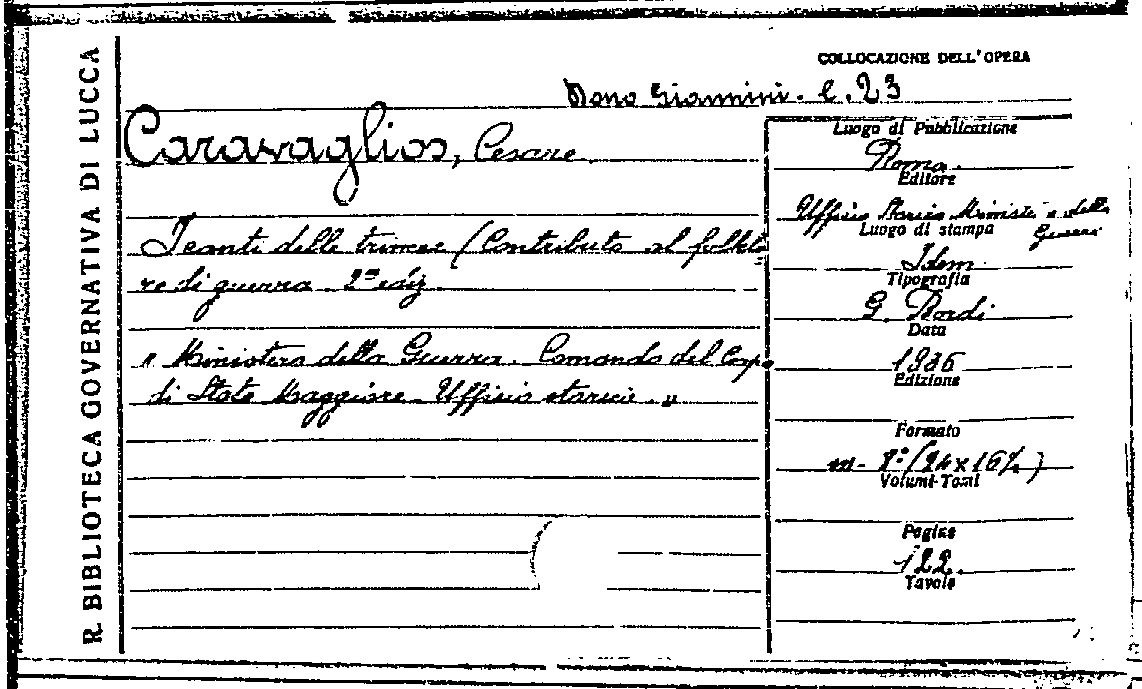 R. BIBLIOTECA GOVERNATIVA DI LUCCA
COLLOCAZIONE DELL'OPERA
Dono Giannini. C. 23
Caravaglios, Cesare.
I canti delle trincee (Contributo al folklo=
re di guerra. 2ª ediz.
"Ministero della Guerra. Comando del Corpo
di Stato Maggiore - Ufficio storico."
Luogo di Pubblicazione
Roma.
Editore
Ufficio Storico Minist. della
Guerra
Luogo di stampa
Idem.
Tipografia
G. Bardi
Data
1936
Edizione
Formato
m- 8º (24x16½)
Volumi-Tomi
Pagine
122.
Tavole